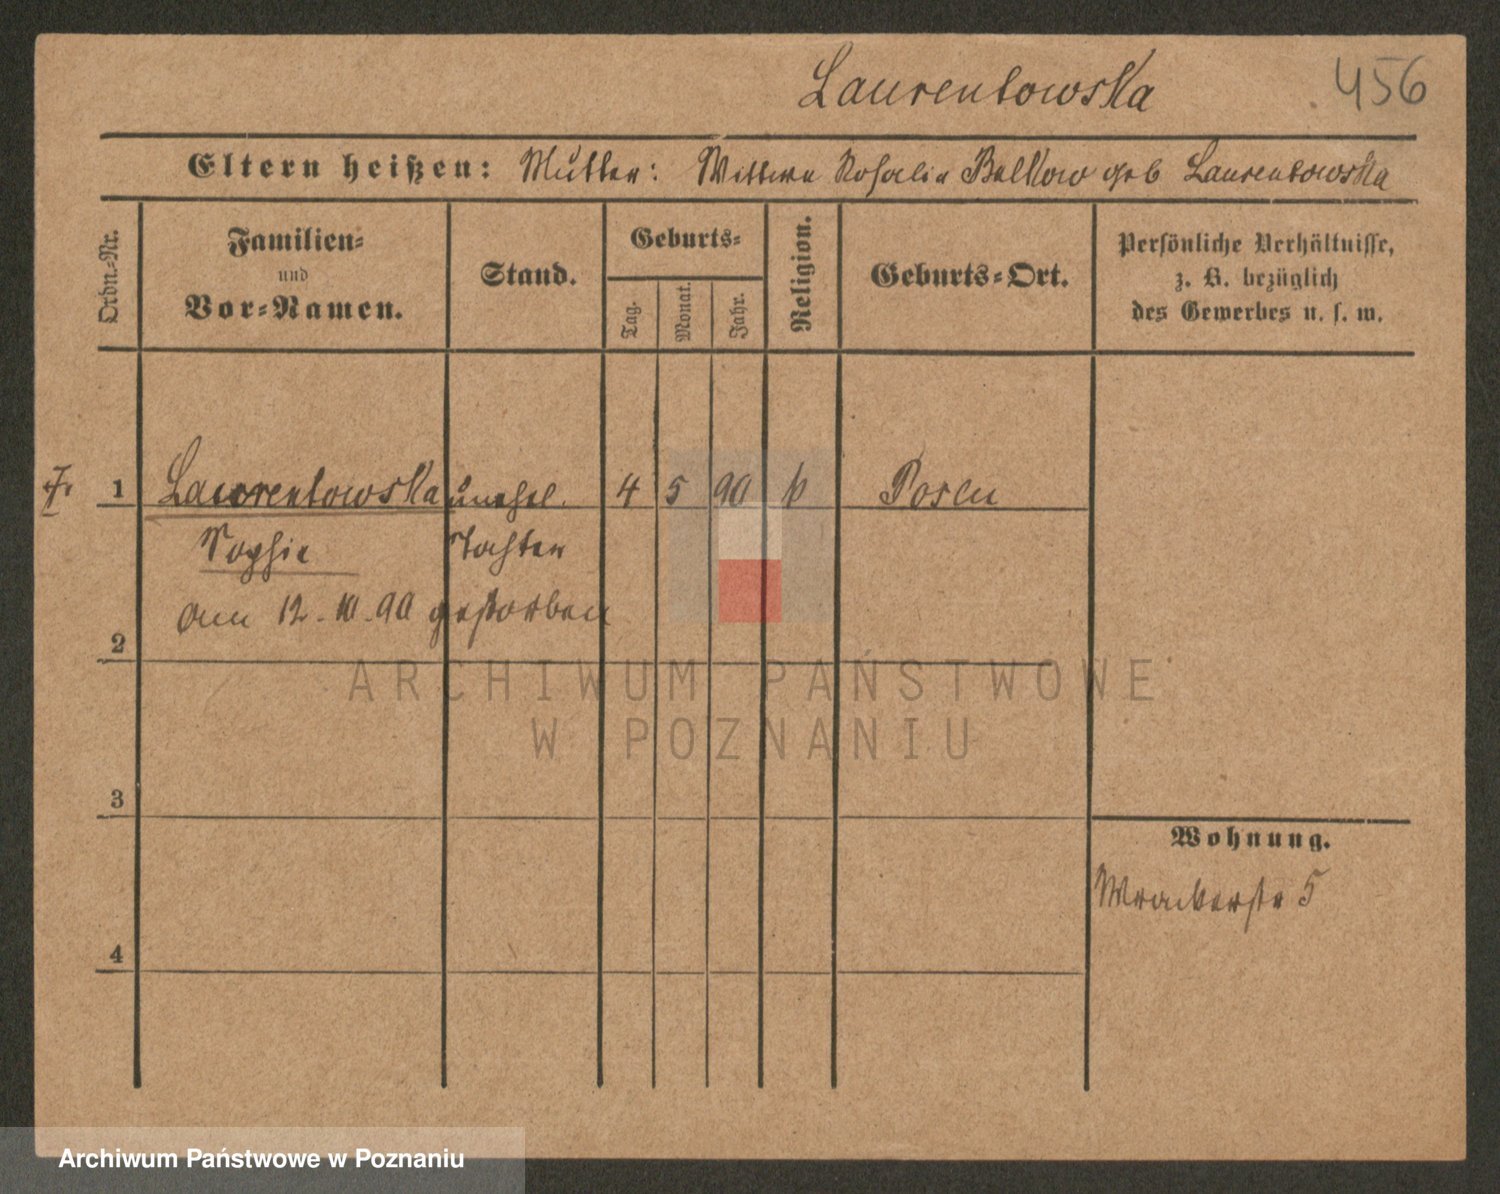 Laurentowska 456
Eltern heißen: Mutter: Wittwe Rosalie Balkow geb Laurentowska
Ordn.-Nr.
Familien-
und
Vor-Namen.
Stand.
Geburts-
Tag.
Monat.
Jahr.
Religion.
Geburts-Ort.
Persönliche Verhältnisse,
z. B. bezüglich
des Gewerbes u. s. w.
1 Laurentowska unehel. 4 5 90 k Posen
Sophie Tochter
am 12.10.90 gestorben
2
ARCHIWUM PAŃSTWOWE
W POZNANIU
3
Wohnung.
5
4
Archiwum Państwowe w Poznaniu